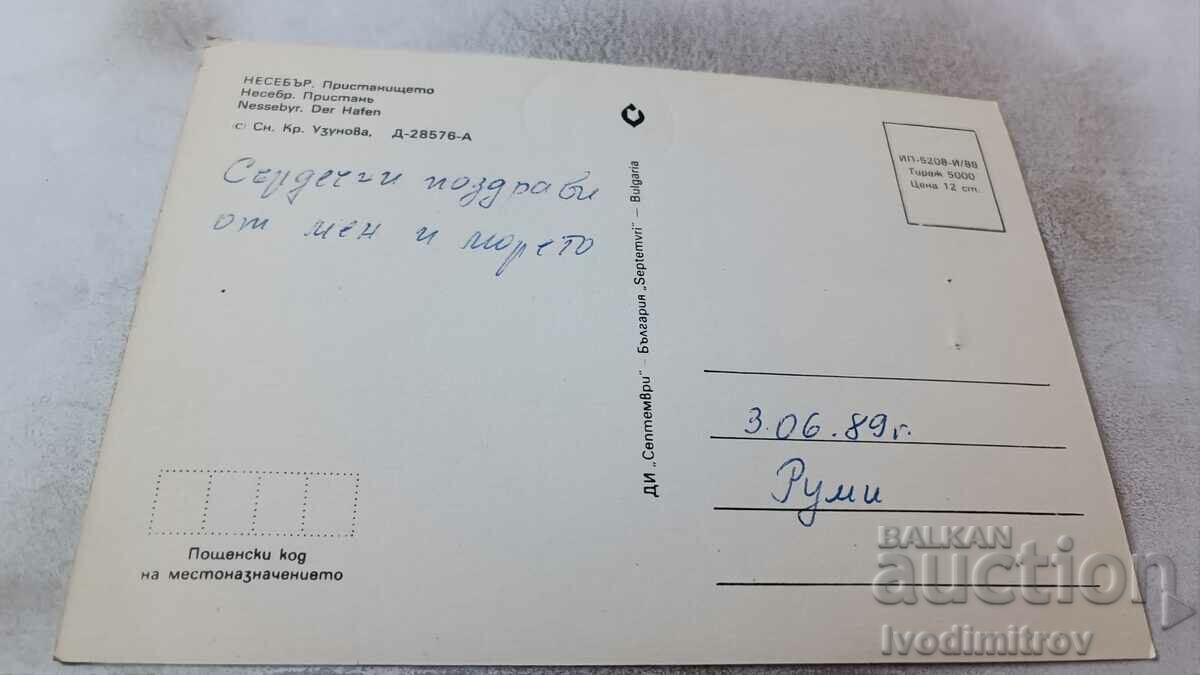 НЕСЕБЪР. Пристанището
Несебр. Пристань
Nessebyr. Der Hafen
(С) Сн. Кр. Узунова, Д-28576-А
Сърдечни поздрави
от мен и морето
Пощенски код
на местоназначението
ДИ „Септември" – България „Septemvri" – Bulgaria
ИП-5208-И/88
Тираж 5000
Цена 12 ст.
3.06.89г.
Руми
BALKAN
auction
Ivodimitrov